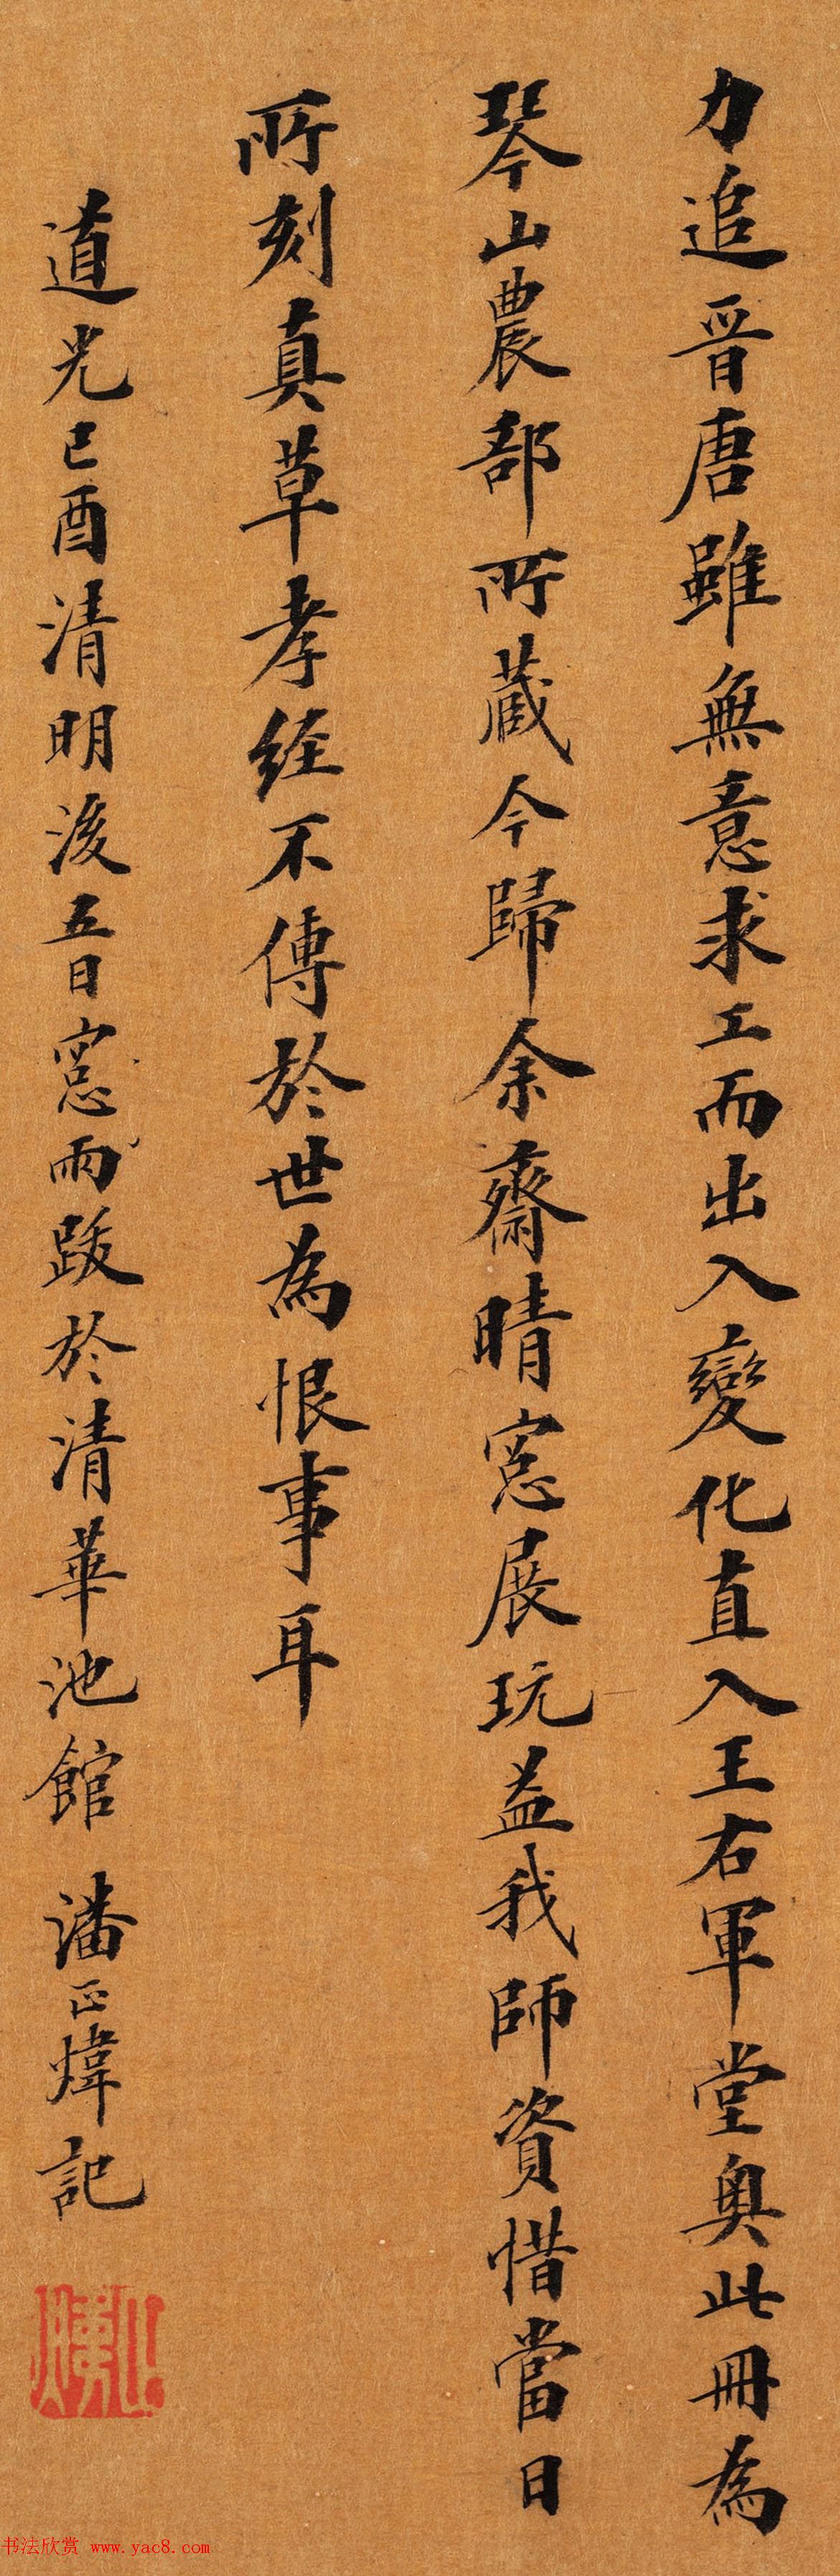 力追晉唐雖無意求工而出入變化直入王右軍堂奧此冊為
琴山農部所藏今歸余齋晴窓展玩益我師資惜當日
所刻真草孝經不傳於世為恨事耳
道光己酉清明後五日窓雨跋於清華池館 潘正煒記
书法欣赏 www.yac8.com